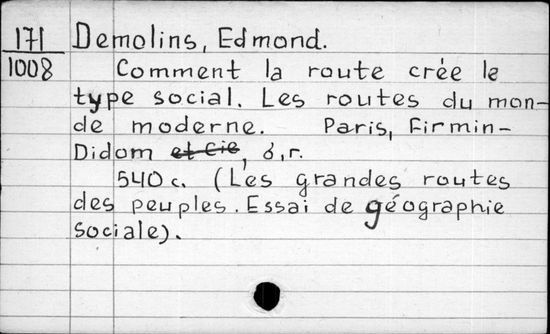 171 Demolins, Edmond.
1008 Comment la route crée le
type social. Les routes du mon-
de moderne. Paris, Firmin-
Didom et Cie, б.г.
540 c. (Les grandes routes
des peuples. Essai de géographie
sociale).